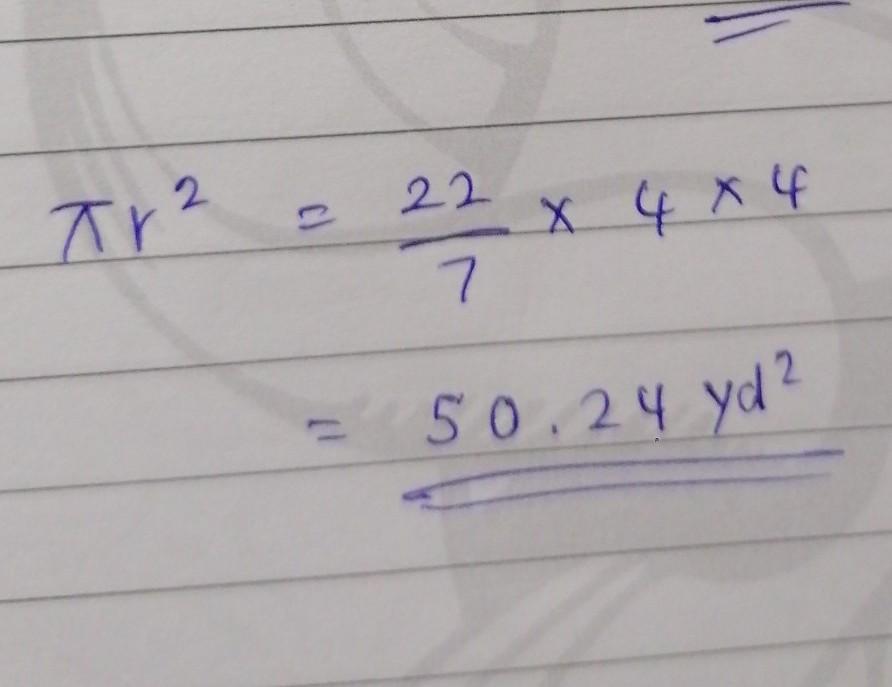 πr² = 22/7 x 4 x 4
= 50.24 yd²